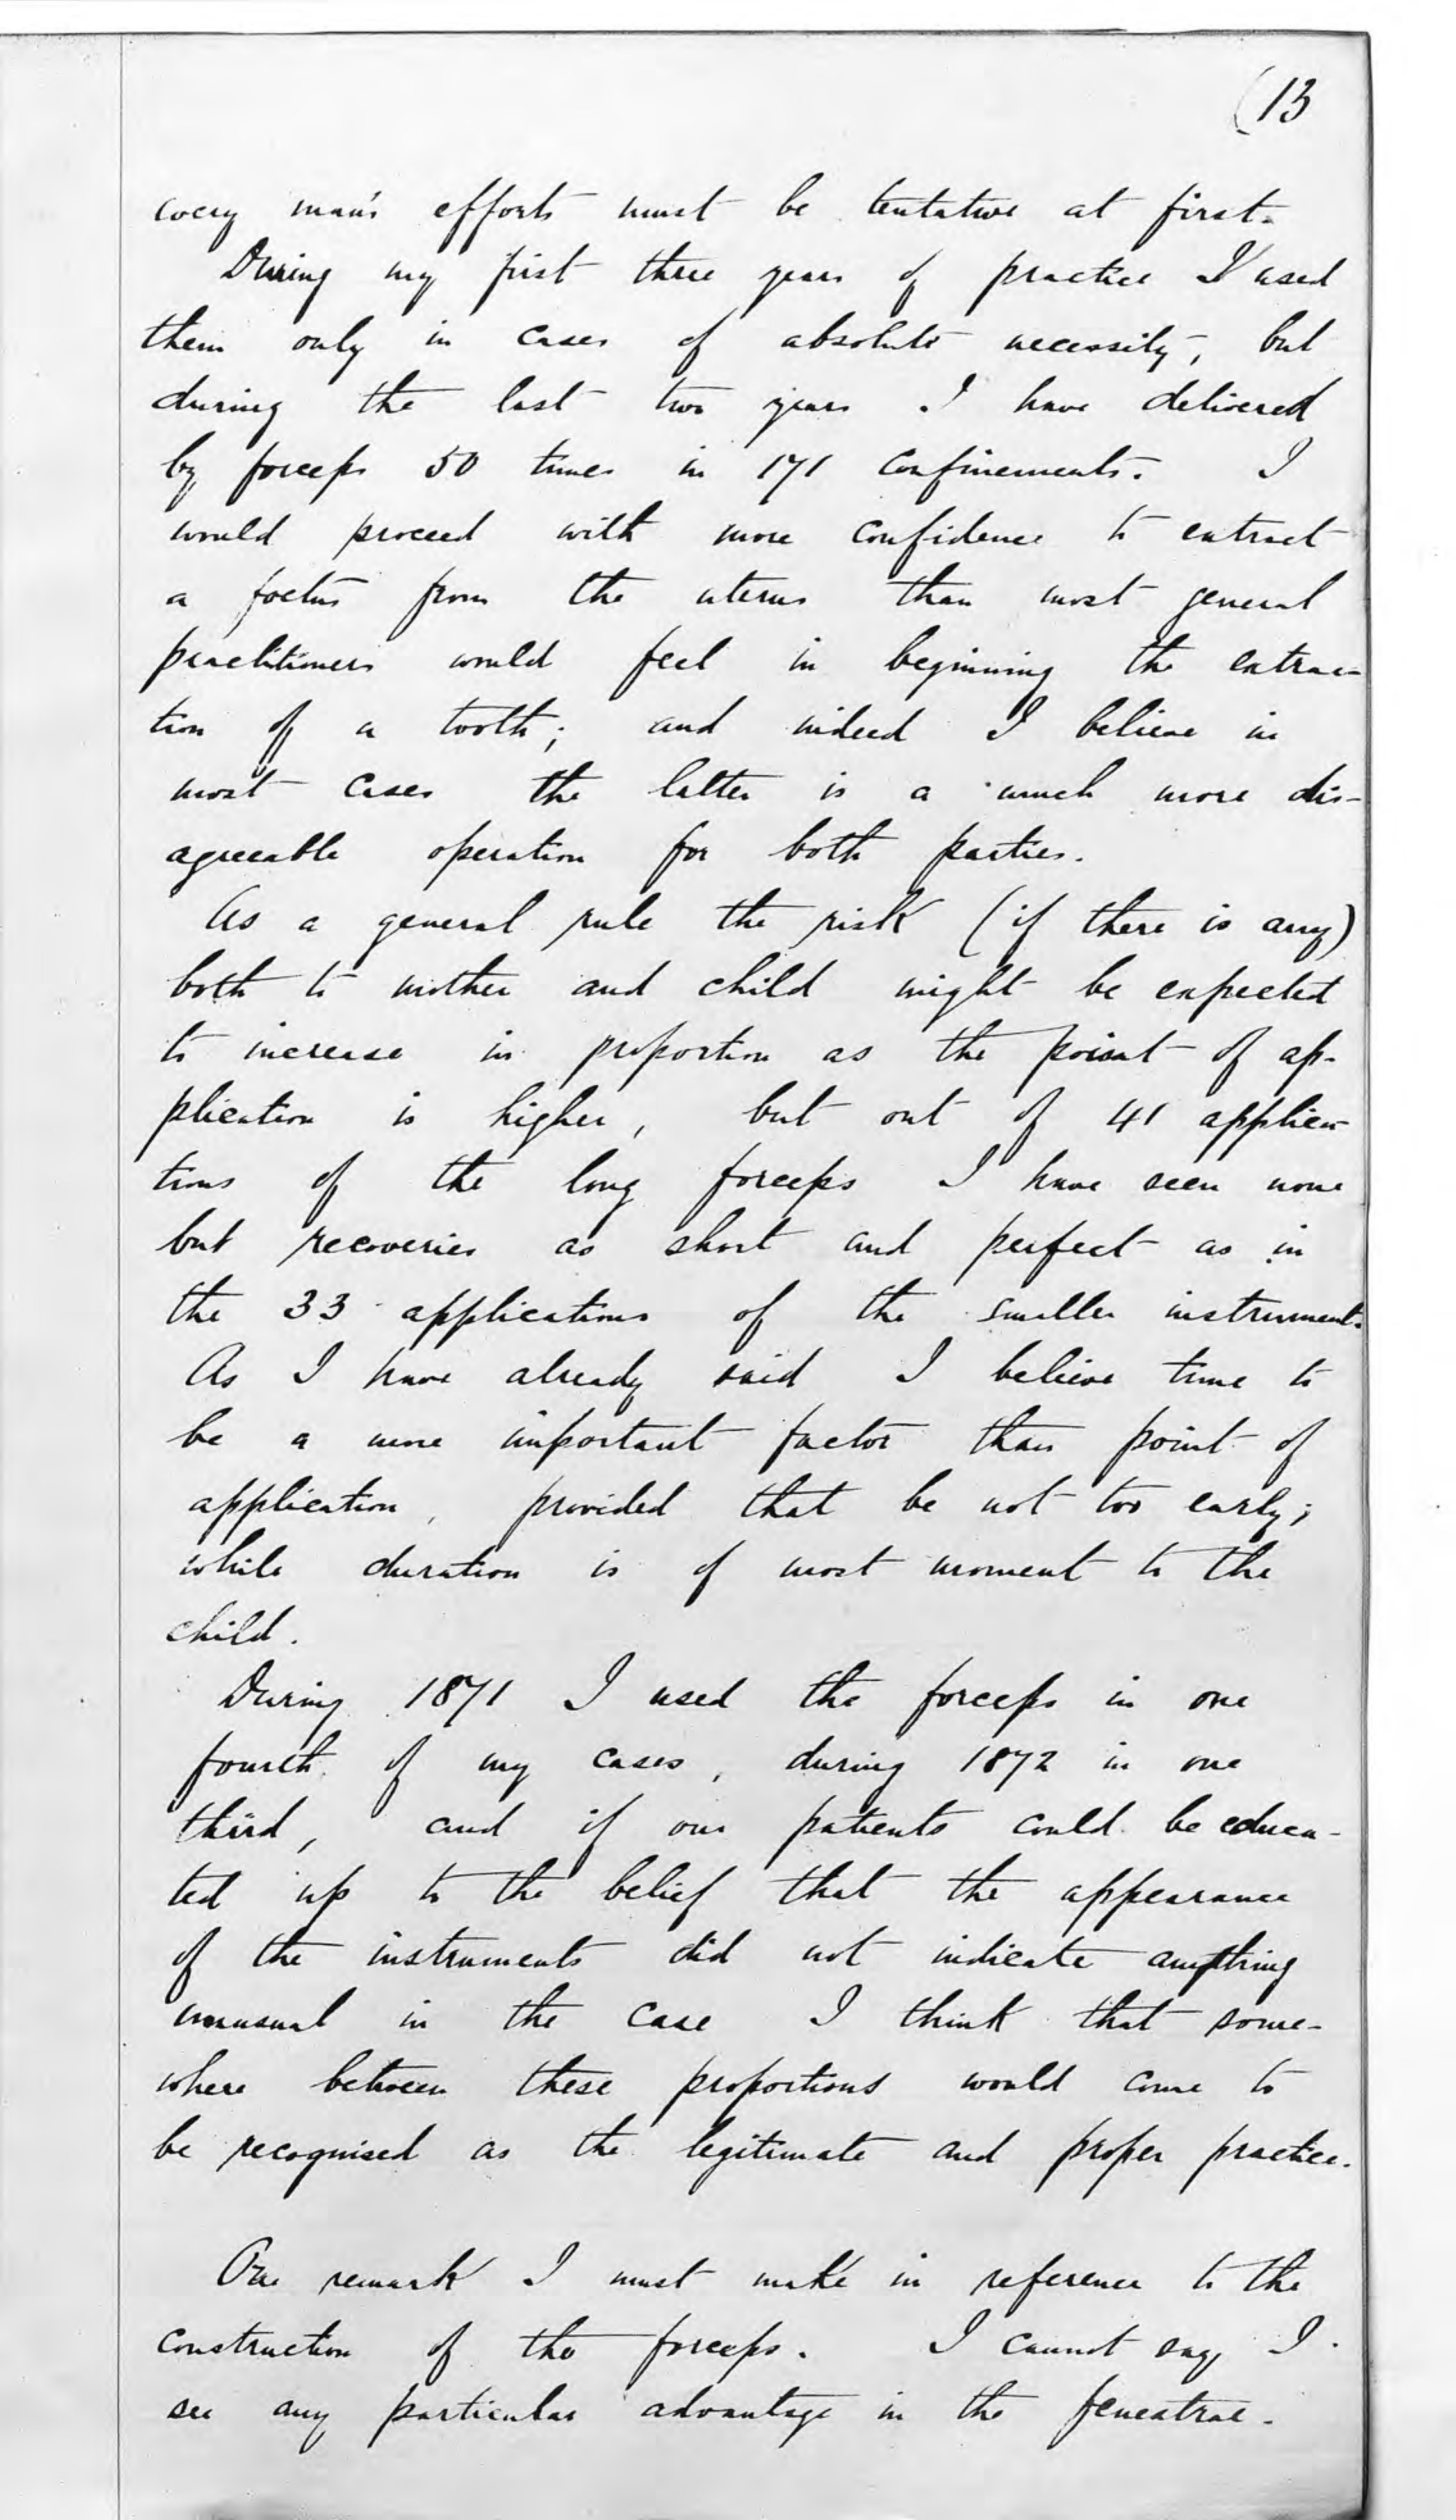 (13
every man's efforts must be tentative at first.
During my first three years of practice I used
them only in cases of absolute necessity, but
during the last two years I have delivered
by forceps 50 times in 171 confinements. I
would proceed with more confidence to extract
a foetus from the uterus than most general
practitioners would feel in beginning the extrac-
tion of a tooth; and indeed I believe in
most cases the latter is a much more dis-
agreeable operation for both parties.
As a general rule the risk (if there is any)
both to mother and child might be expected
to increase in proportion as the point of ap-
plication is higher, but out of 41 applica-
tions of the long forceps I have seen none
but recoveries as short and perfect as in
the 33 applications of the smaller instrument.
As I have already said I believe time to
be a more important factor than point of
application, provided that be not too early;
while duration is of most moment to the
child.
During 1871 I used the forceps in one
fourth of my cases, during 1872 in one
third, and if our patients could be educa-
ted up to the belief that the appearance
of the instruments did not indicate anything
unusual in the case I think that some-
where between these proportions would come to
be recognised as the legitimate and proper practice.
One remark I must make in reference to the
construction of the forceps. I cannot say I
see any particular advantage in the fenestrae.